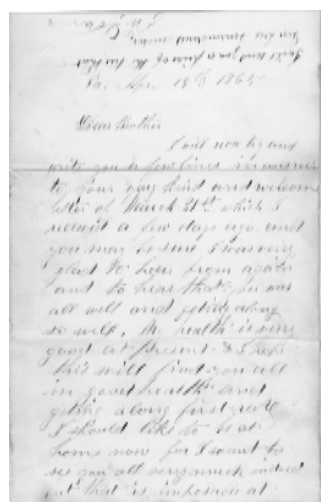 I will send you a piece of the
Va. Apr. 19th 1865
Dear Brother
I will now try and
write you a few lines in answer
to your very kind and welcome
letter of March 21st which I
received a few days ago and
you may be sure I was very
glad to hear from again
and to hear that you was
all well and getting along
so well. My health is very
good at present & I hope
this will find you all
in good health and
getting along first rate
I should like to be at
home now for I want to
see you all very much indeed
but that is impossible at